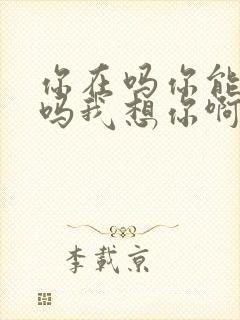 你在吗你能
吗我想你啊
李载京